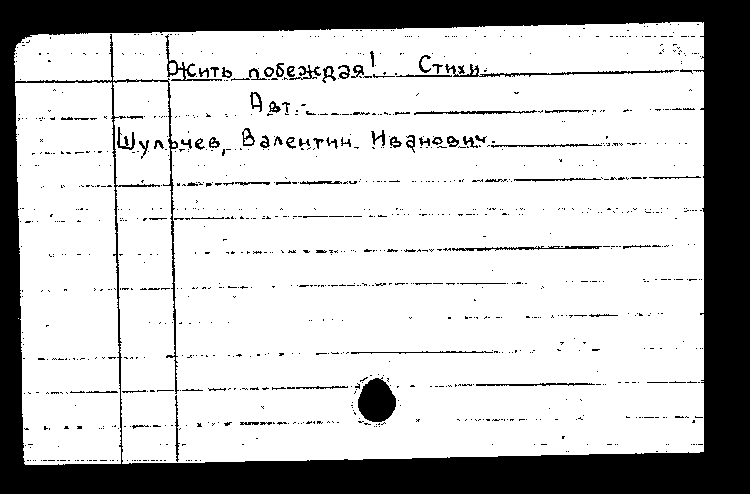 Жить побеждая! Стихи.
Авт.-
Шульчев, Валентин Иванович.